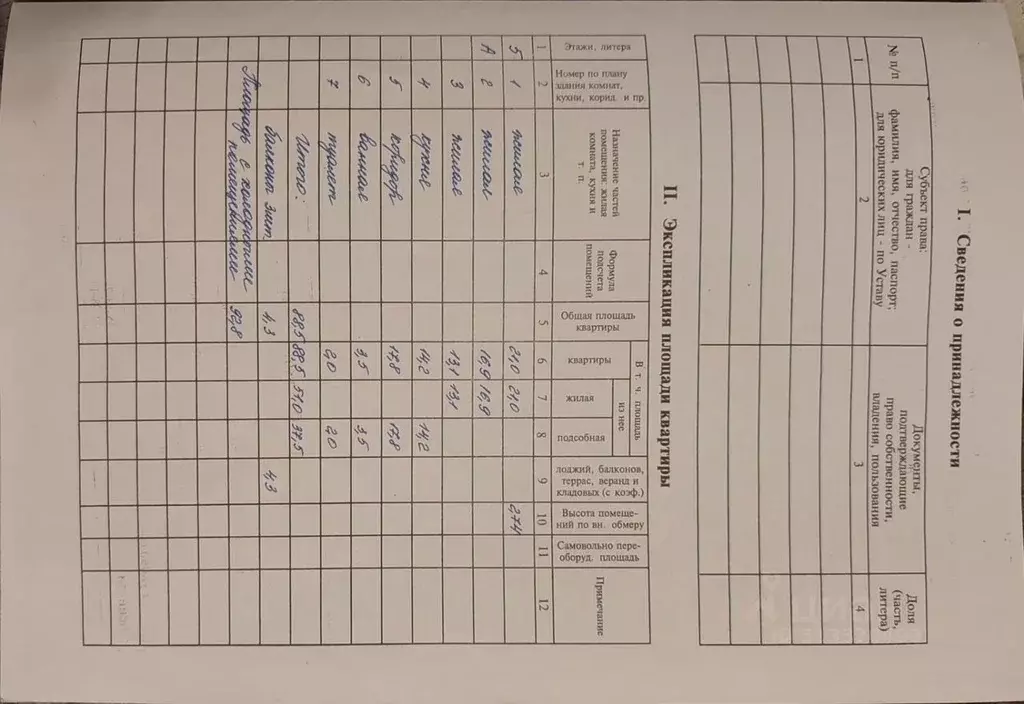 I. Сведения о принадлежности
№ п/п
Субъект права:
для граждан -
фамилия, имя, отчество, паспорт;
для юридических лиц - по Уставу
Документы,
подтверждающие
право собственности,
владения, пользования
Доля
(часть,
литера)
1 2 3 4
II. Экспликация площади квартиры
Этажи, литера
Номер по плану
здания комнат,
кухни, корид. и пр.
Назначение частей
помещения: жилая
комната, кухня и
т. п.
Формула
подсчета
помещений
Общая площадь
квартиры
В т. ч. площадь
квартиры
из нее
жилая
подсобная
лоджий, балконов,
террас, веранд и
кладовых (с коэф.)
Высота помеще-
ний по вн. обмеру
Самовольно пере-
оборуд. площадь
Примечание
1 2 3 4 5 6 7 8 9 10 11 12
5 1 жилая 21,0 21,0 2,74
А 2 жилая 16,9 16,9
3 жилая 13,1 13,1
4 кухня 14,2 14,2
5 коридор 17,8 17,8
6 ванная 3,5 3,5
7 туалет 2,0 2,0
Итого: 88,5 88,5 51,0 37,5
балконы 4,3 4,3
Площадь с холодными
помещениями 92,8